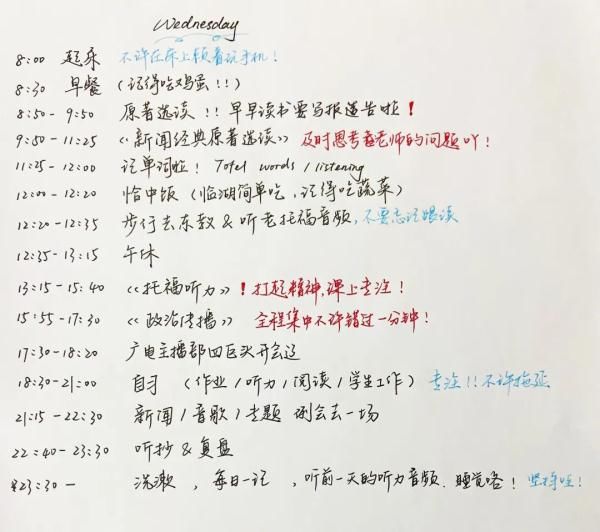 Wednesday
8:00 起床 不许在床上躺着玩手机!
8:30 早餐 (记得吃鸡蛋!!)
8:50-9:50 原著选读!!早早读书要写报道告啦!
9:50-11:25 《新闻经典原著选读》 及时思考老师的问题吖!
11:25-12:00 记单词啦! Tofel words / listening
12:00-12:20 恰中饭 (临湖简单吃,记得吃蔬菜)
12:20-12:35 步行去东教 & 听老托福音频,不要忘记跟读
12:35-13:15 午休
13:15-15:40 《托福听力》!打起精神,课上专注!
15:55-17:30 《政治传播》 全程集中不许错过一分钟!
17:30-18:20 广电主播部四区头开会辽
18:30-21:00 自习 (作业/听力/阅读/学生工作) 专注!!不许拖延
21:15-22:30 新闻/音歌/专题 例会去一场
22:40-23:30 听抄 & 复盘
23:30- 洗漱,每日一记,听前一天的听力音频.睡觉咯! 坚持哇!